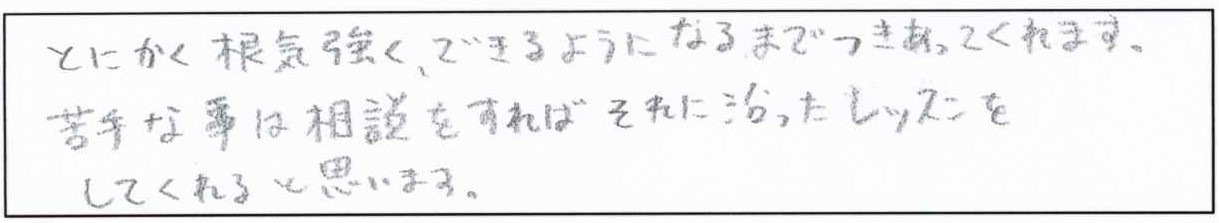 とにかく根気強く、できるようになるまでつきあってくれます。
苦手な事は相説をすればそれに沿ったレッスンを
してくれると思います。